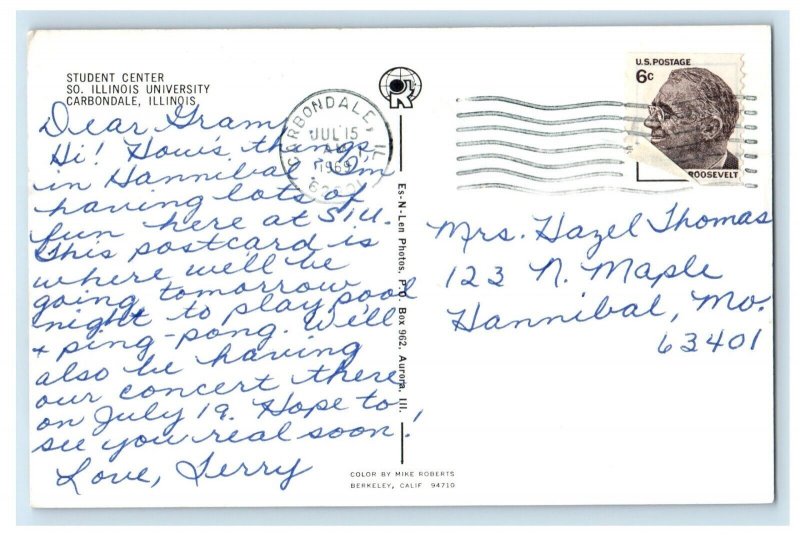 STUDENT CENTER
SO. ILLINOIS UNIVERSITY
CARBONDALE, ILLINOIS
Dear Gram,
Hi! How's things
in Hannibal? I'm
having lots of
fun here at SIU.
This postcard is
where we'll be
going tomorrow
night to play pool
+ ping-pong. We'll
also be having
our concert there
on July 19. Hope to
see you real soon!
Love, Terry
CARBONDALE, IL
JUL 15
1969
Es-N-Len Photos, P.O. Box 962, Aurora, Ill.
U.S. POSTAGE
6c
ROOSEVELT
Mrs. Hazel Thomas
123 N. Maple
Hannibal, Mo.
63401
COLOR BY MIKE ROBERTS
BERKELEY, CALIF 94710